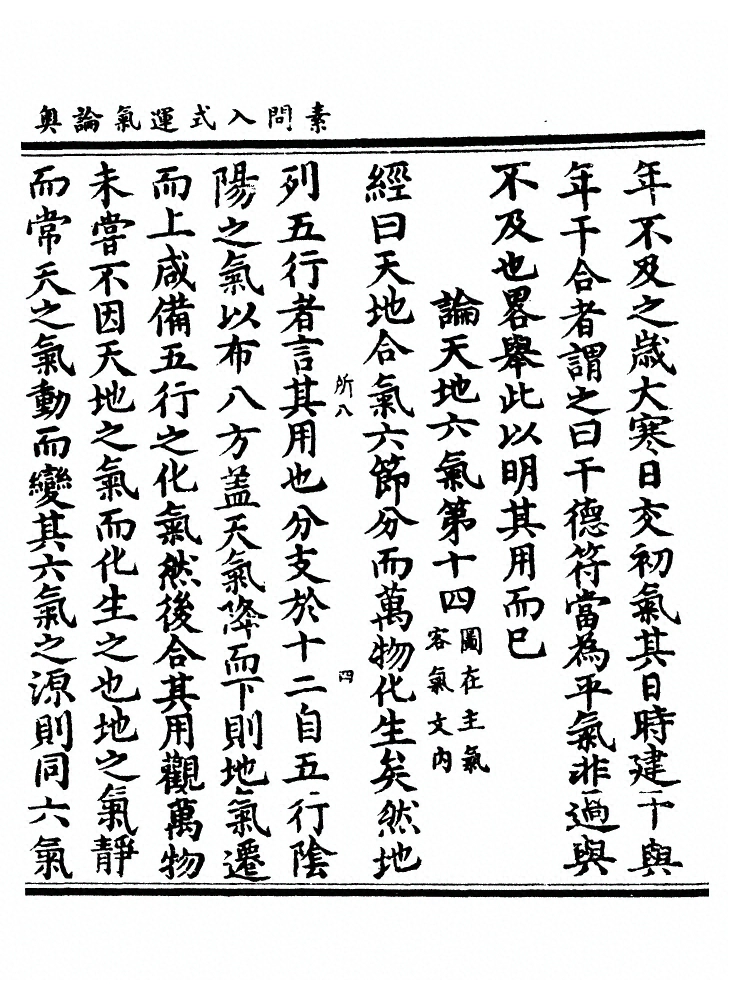 素問入式運氣論奥
年不及之歲大寒日交初氣其日時建干與
年干合者謂之曰干德符當為平氣非過與
不及也畧舉此以明其用而已
論天地六氣第十四圖在主氣客氣文内
經曰天地合氣六節分而萬物化生矣然地
所八 四
列五行者言其用也分支於十二自五行陰
陽之氣以布八方盖天氣降而下則地氣遷
而上咸備五行之化氣然後合其用觀萬物
未嘗不因天地之氣而化生之也地之氣靜
而常天之氣動而變其六氣之源則同六氣